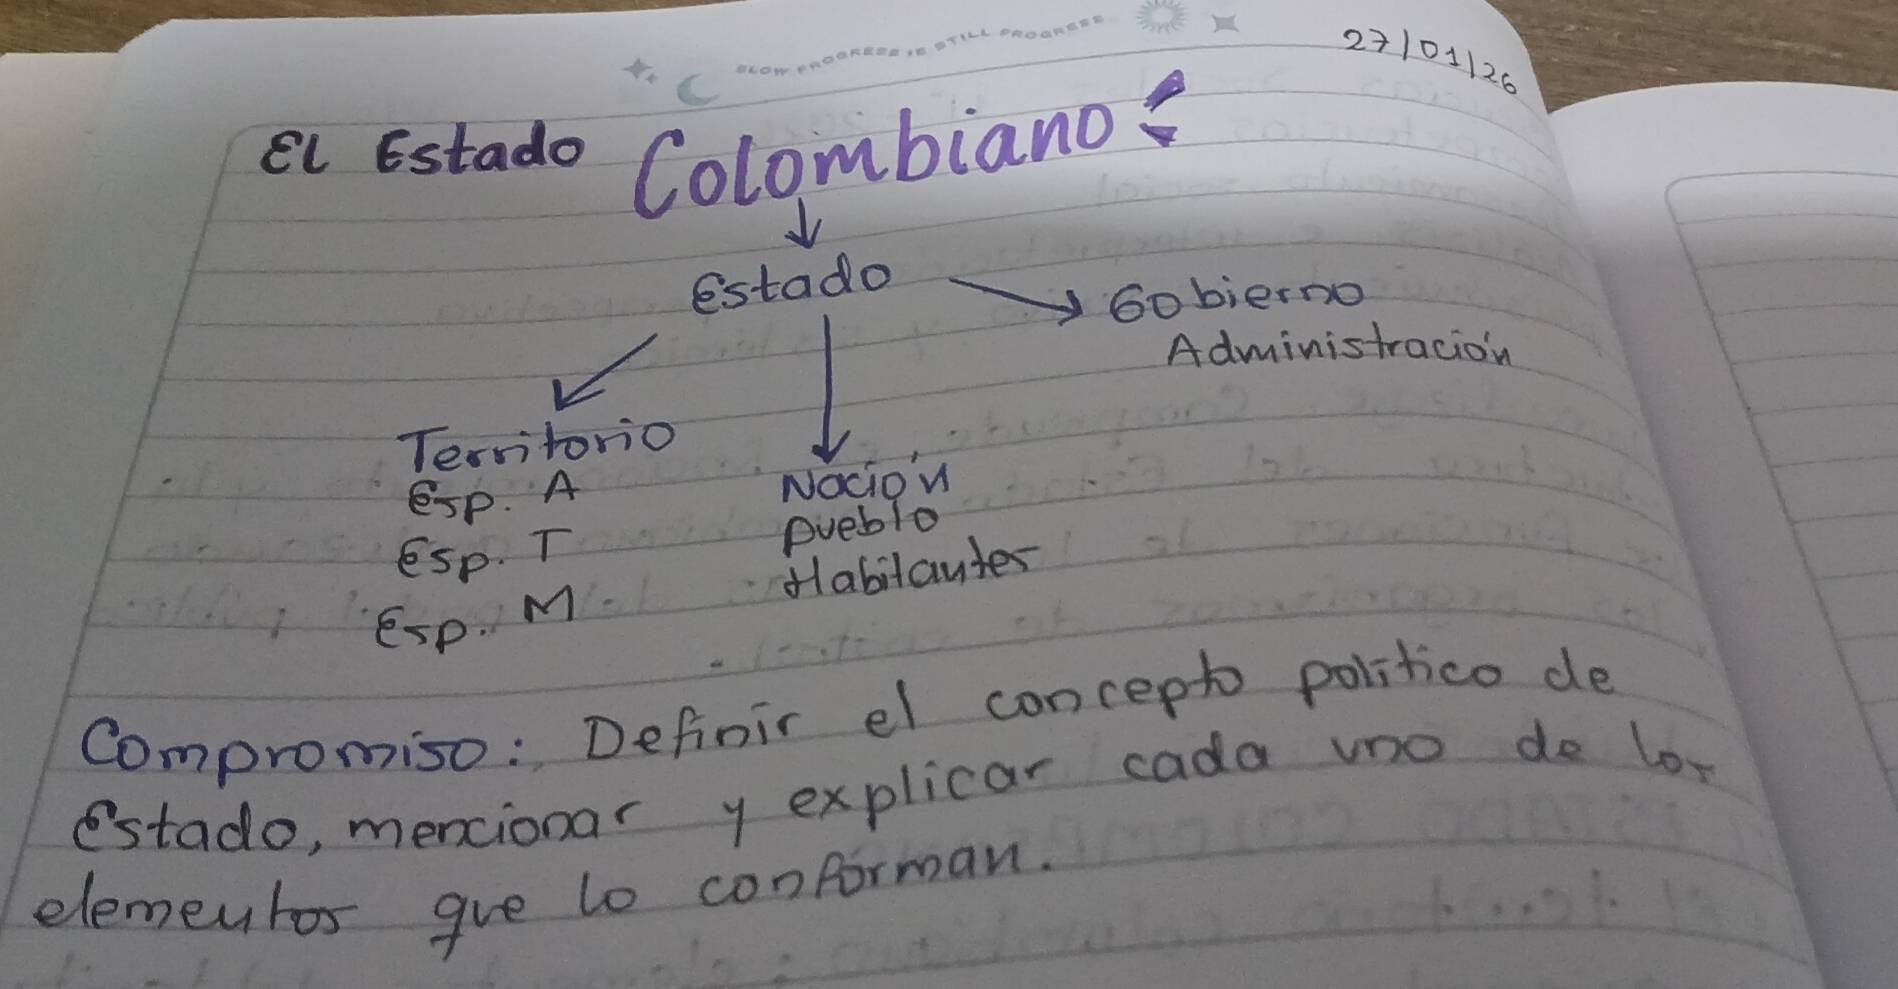 SLOW PROGRESS IS STILL PROGRESS
27/01/26
El Estado Colombiano:
Estado
Gobierno
Administración
Territorio
Esp. A
Esp. T
Esp. M
Nación
pueblo
Habitantes
Compromiso: Definir el concepto político de
Estado, mencionar y explicar cada uno de los
elementos que lo conforman.